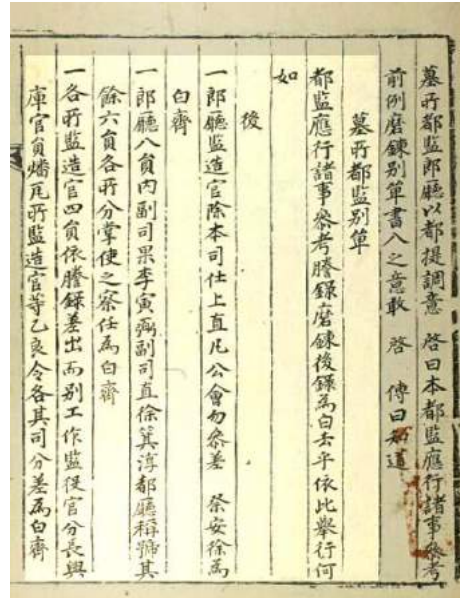 墓所都監郞廳以都提調意 啓曰本都監應行諸事叅考
前例磨鍊別單書入之意敢 啓 傳曰知道
墓所都監別單
都監應行諸事叅考謄錄磨鍊後錄爲白去乎依此擧行何
如
後
一郞廳監造官除本司仕上直凡公會勿叅差 祭安徐爲
白齊
一郞廳八員內副司果李寅弼副司直徐箕淳都廳稱號其
餘六員各所分掌使之察任爲白齊
一各所監造官四員依謄錄差出而別工作監役官分長興
庫官員燔瓦所監造官等乙良令各其司分差爲白齊